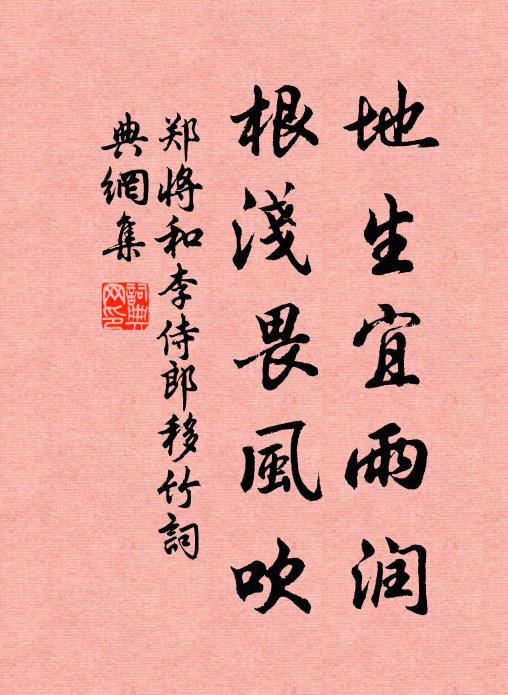 地生宜雨润
根淺畏風吹
郑將和李侍郎移竹詞
典網集
詞典
网印